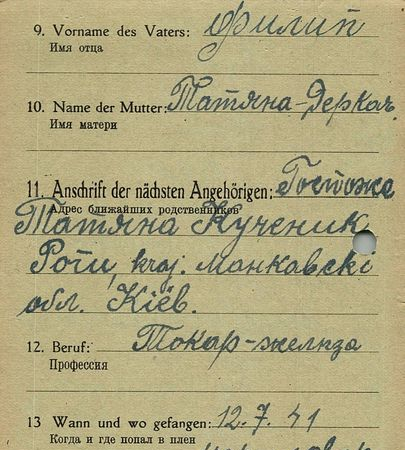 9. Vorname des Vaters: Филип
Имя отца
10. Name der Mutter: Татяна-Деркач
Имя матери
11. Anschrift der nächsten Angehörigen:
Адрес ближайших родственников
Татяна Кученик
Роги, kraj. Манкавскі
обл. Кіёв.
12. Beruf: Токар-желиза
Профессия
13 Wann und wo gefangen: 12.7.41
Когда и где попал в плен